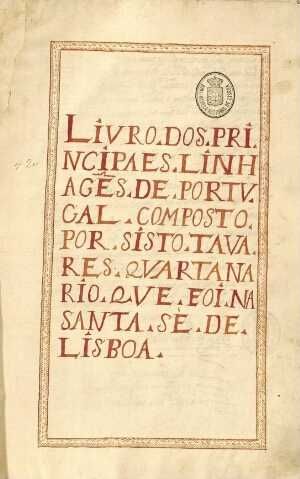 LIVRO.DOS.PRI.
NCIPAES.LINH
AGẼS.DE.PORTV.
GAL.COMPOSTO.
POR.SISTO.TAVA.
RES.QVARTANA
RIO.QVE.FOI.NA
SANTA.SÈ.DE.
LISBOA.